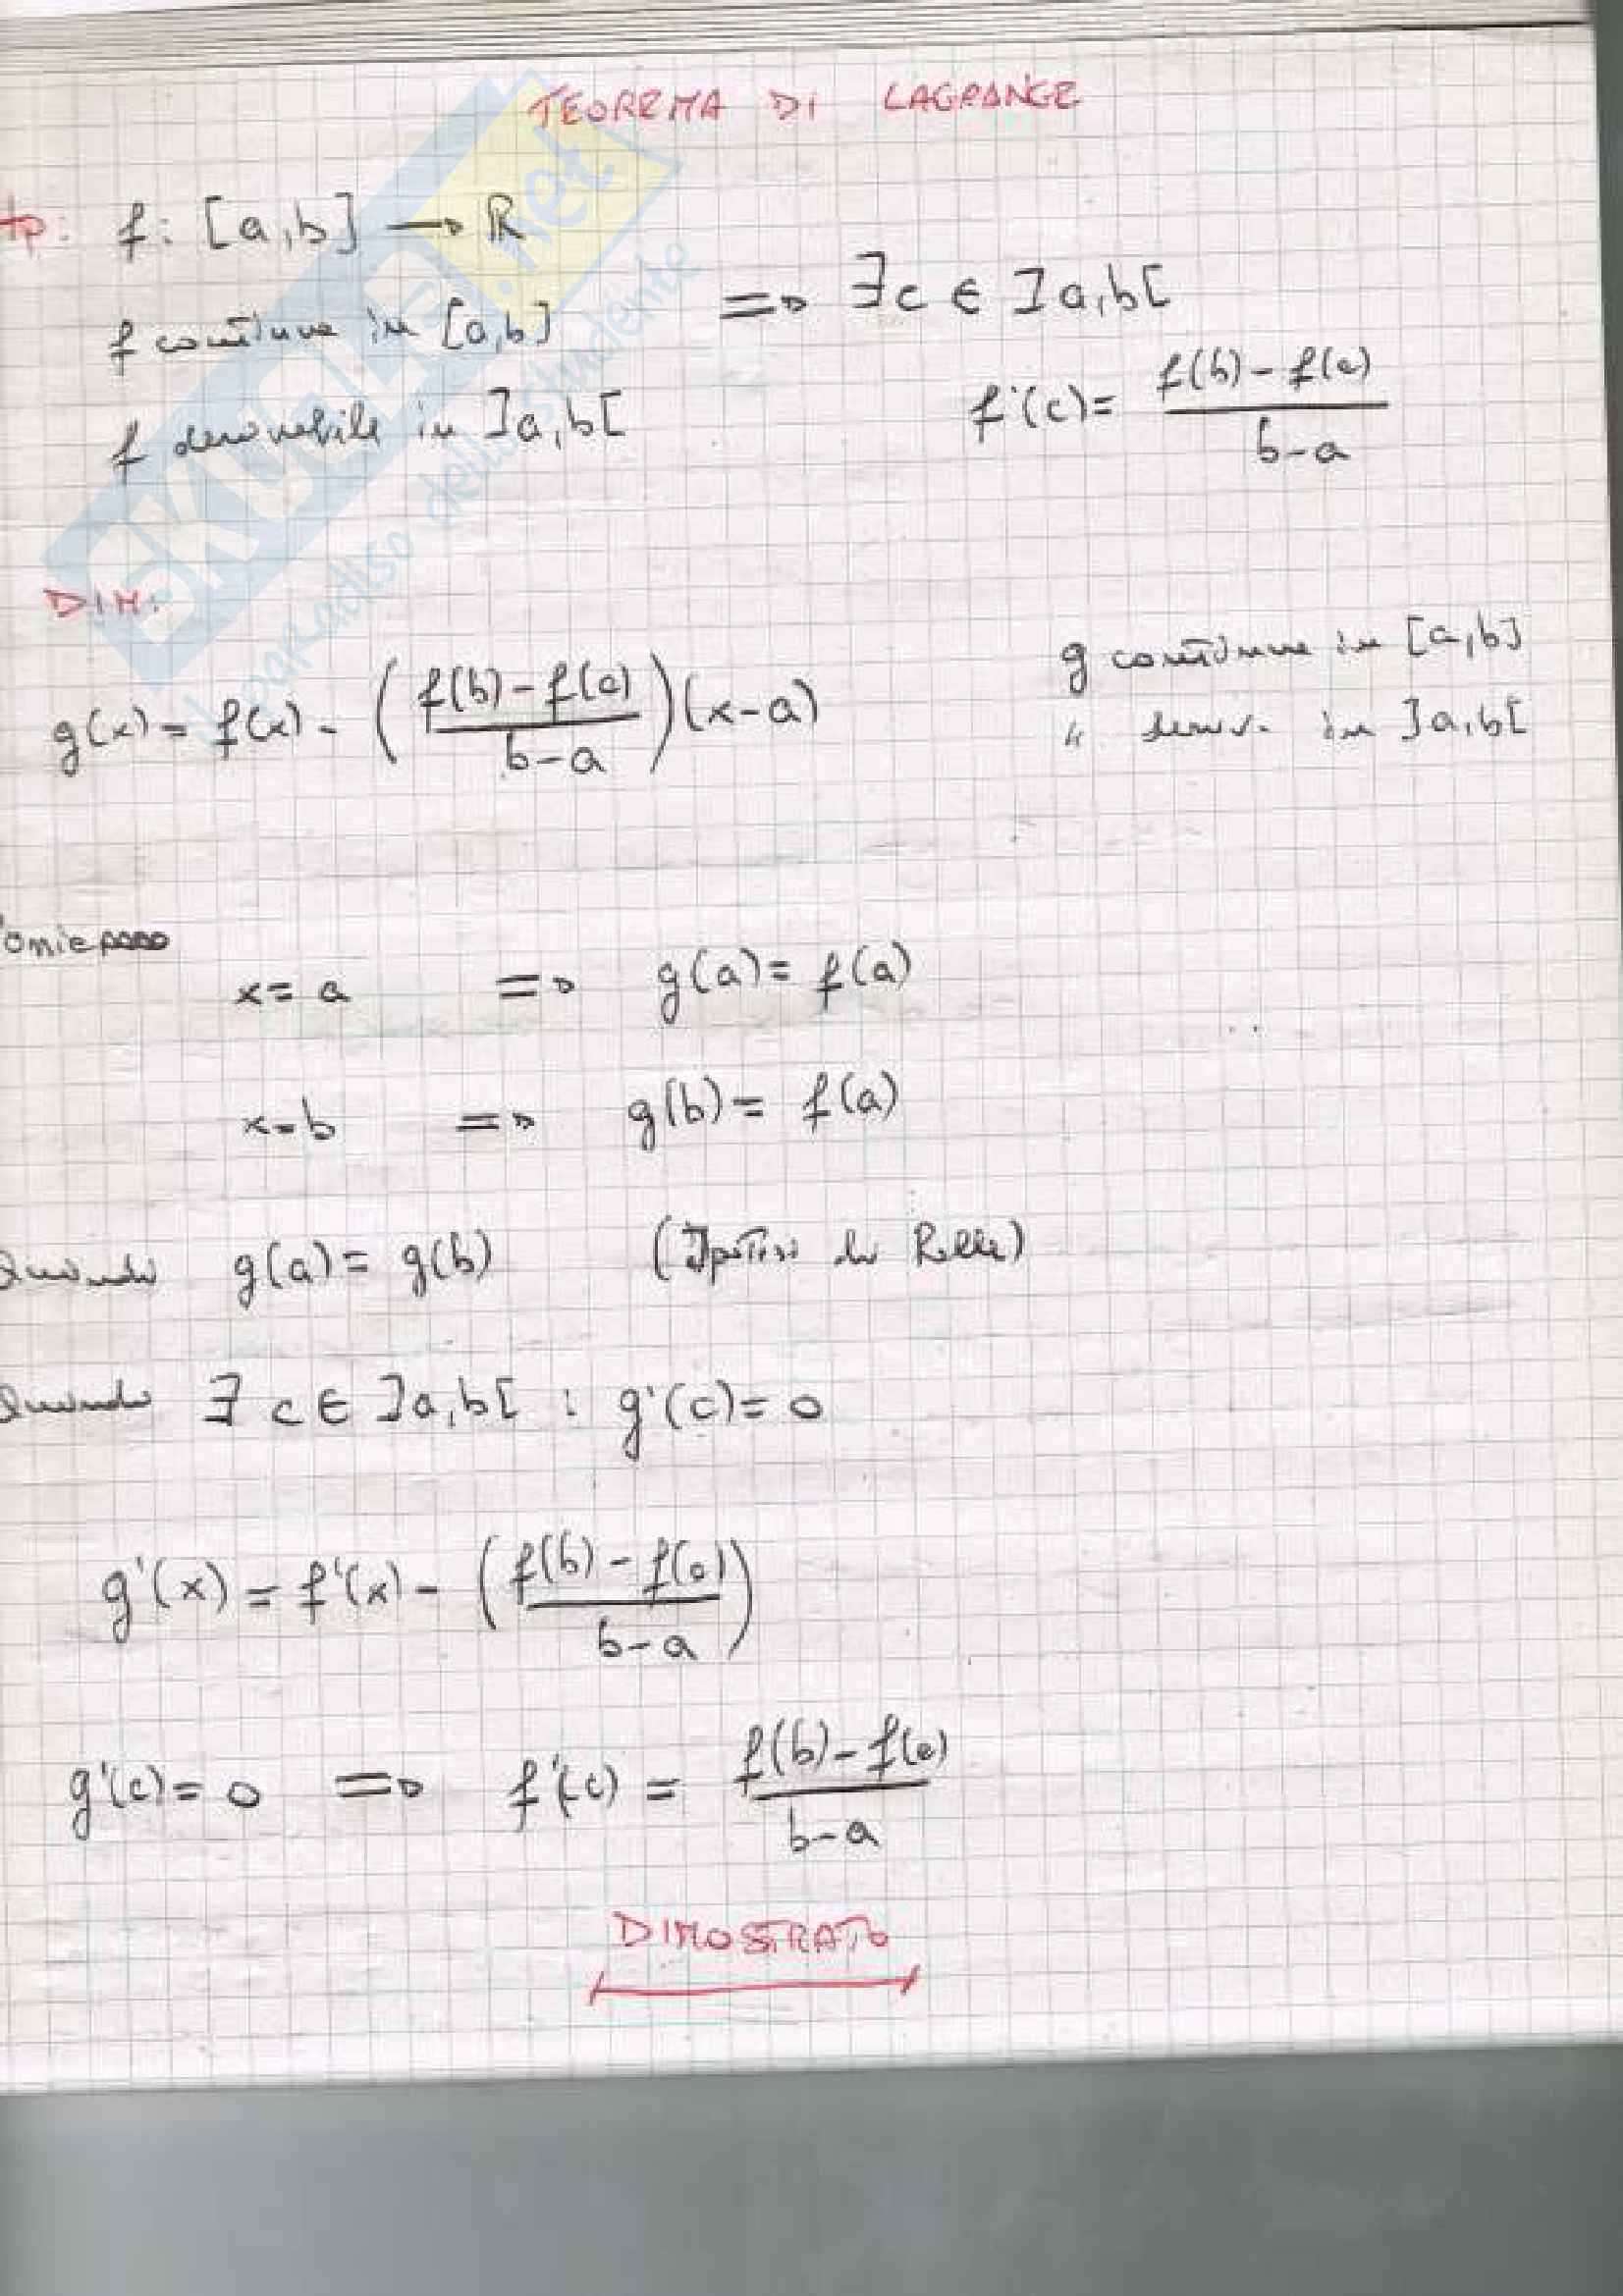 TEOREMA DI LAGRANGE
Ip: f: [a,b] → ℝ
f continua in [a,b] ⟹ ∃c ∈ ]a,b[
f derivabile in ]a,b[ f'(c) = (f(b) - f(a)) / (b - a)
DIM:
g(x) = f(x) - ((f(b) - f(a)) / (b - a)) (x - a) g continua in [a,b]
" deriv. in ]a,b[
x = a ⟹ g(a) = f(a)
x = b ⟹ g(b) = f(a)
Quindi g(a) = g(b) (Ipotesi di Rolle)
Quindi ∃ c ∈ ]a,b[ : g'(c) = 0
g'(x) = f'(x) - ((f(b) - f(a)) / (b - a))
g'(c) = 0 ⟹ f'(c) = (f(b) - f(a)) / (b - a)
DIMOSTRATO
SKUOLA.net
il paradiso dello studente